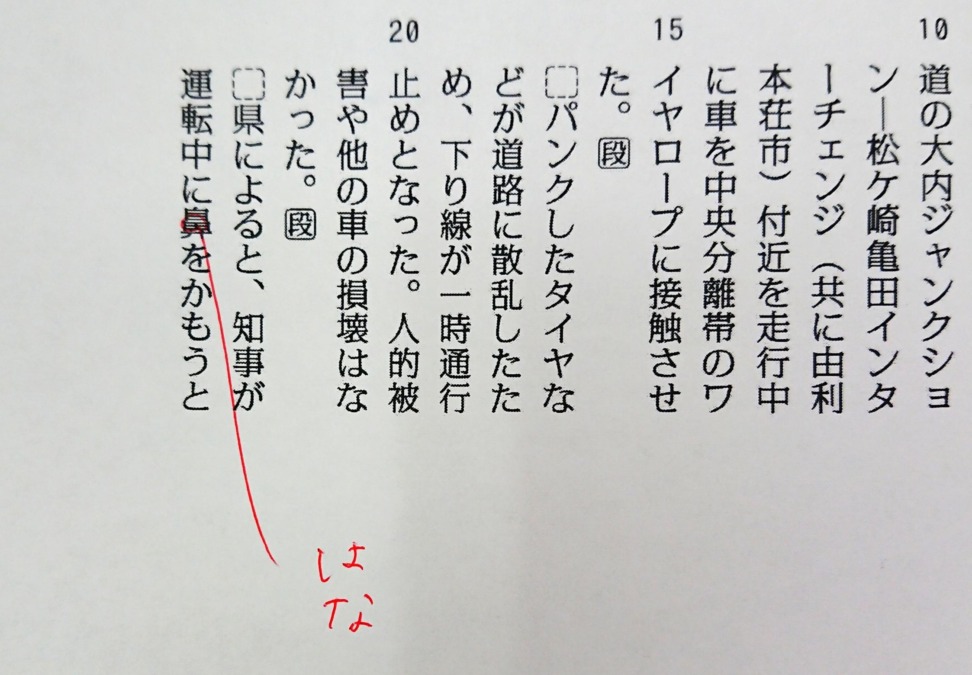 10
道の大内ジャンクショ
ン―松ケ崎亀田インタ
ーチェンジ（共に由利
本荘市）付近を走行中
に車を中央分離帯のワ
15
イヤロープに接触させ
た。段
パンクしたタイヤな
どが道路に散乱したた
め、下り線が一時通行
20
止めとなった。人的被
害や他の車の損壊はな
かった。段
県によると、知事が
運転中に鼻をかもうと
はな